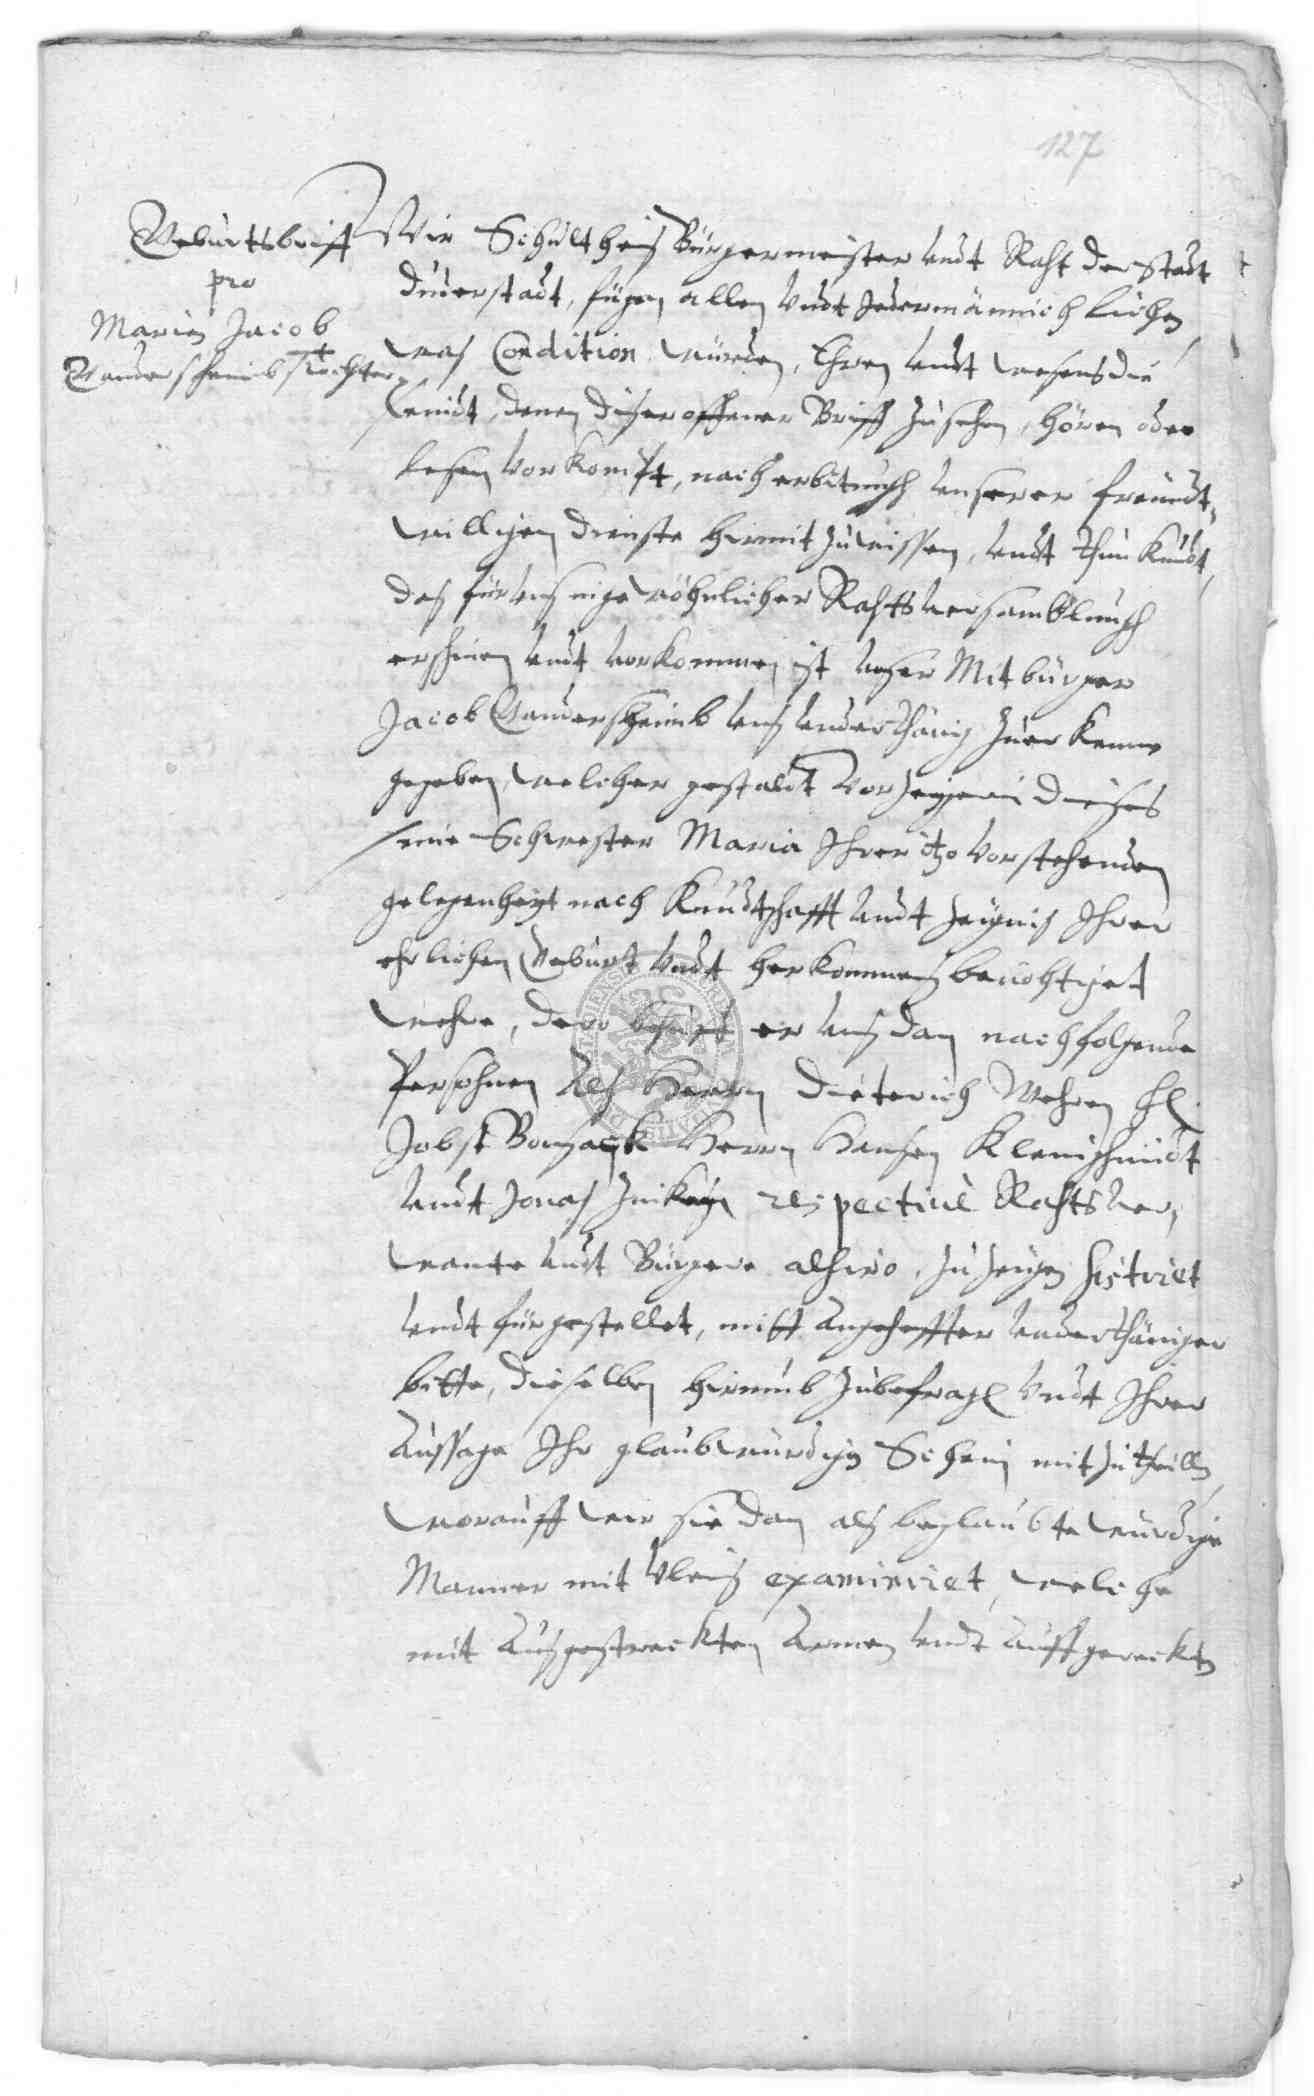 127
Geburtsbriff
pro
Marien Jacob
Gandersheimb Tochter
Wir Schultheis Bürgermeister undt Raht der Stadt
Duderstadt, fügen allen undt Jedermännichlichen
was Condition würden, Ehren undt wesens die
seindt, denen diser offener Briff zusehen, hören oder
lesen vorkompt, nach erbitungh unserer freundt-
willigen dienste hirmit zuwissen, undt thun kundt,
das für uns in gewöhnlicher Rahtsversamblungh
erschinen undt vorkommen ist unser Mitbürger
Jacob Gandersheimb uns underthänig zuerkennen
gegeben, welcher gestaldt vorzeigerin dieses
seine Schwester Maria Ihrer itzo vorstehenden
gelegenheyt nach Kundtschafft undt zeugnis Ihrer
ehrlichen Geburt undt herkommens benöhtiget
wehre, dero behuef er uns dan nachfolgende
Persohnen als Herrn Dieterich Wehren
Jobst Bonsack Herrn Hansen Kleinschmidt
undt Jonas respective Rahtsver-
wante undt Bürgere alhiro, zu zeugen sistiret
undt fürgestellet, mitt angeheffter underthäniger
bitte, dieselben hirumb zubefragen undt Ihrer
Aussage Ihr glaubwürdigen Schein mitzutheillen,
worauff wir sie dan als beglaubte würdige
Manner mit vleis examiniret, welche
mit Ausgestreckten Armen undt Auffgereckten